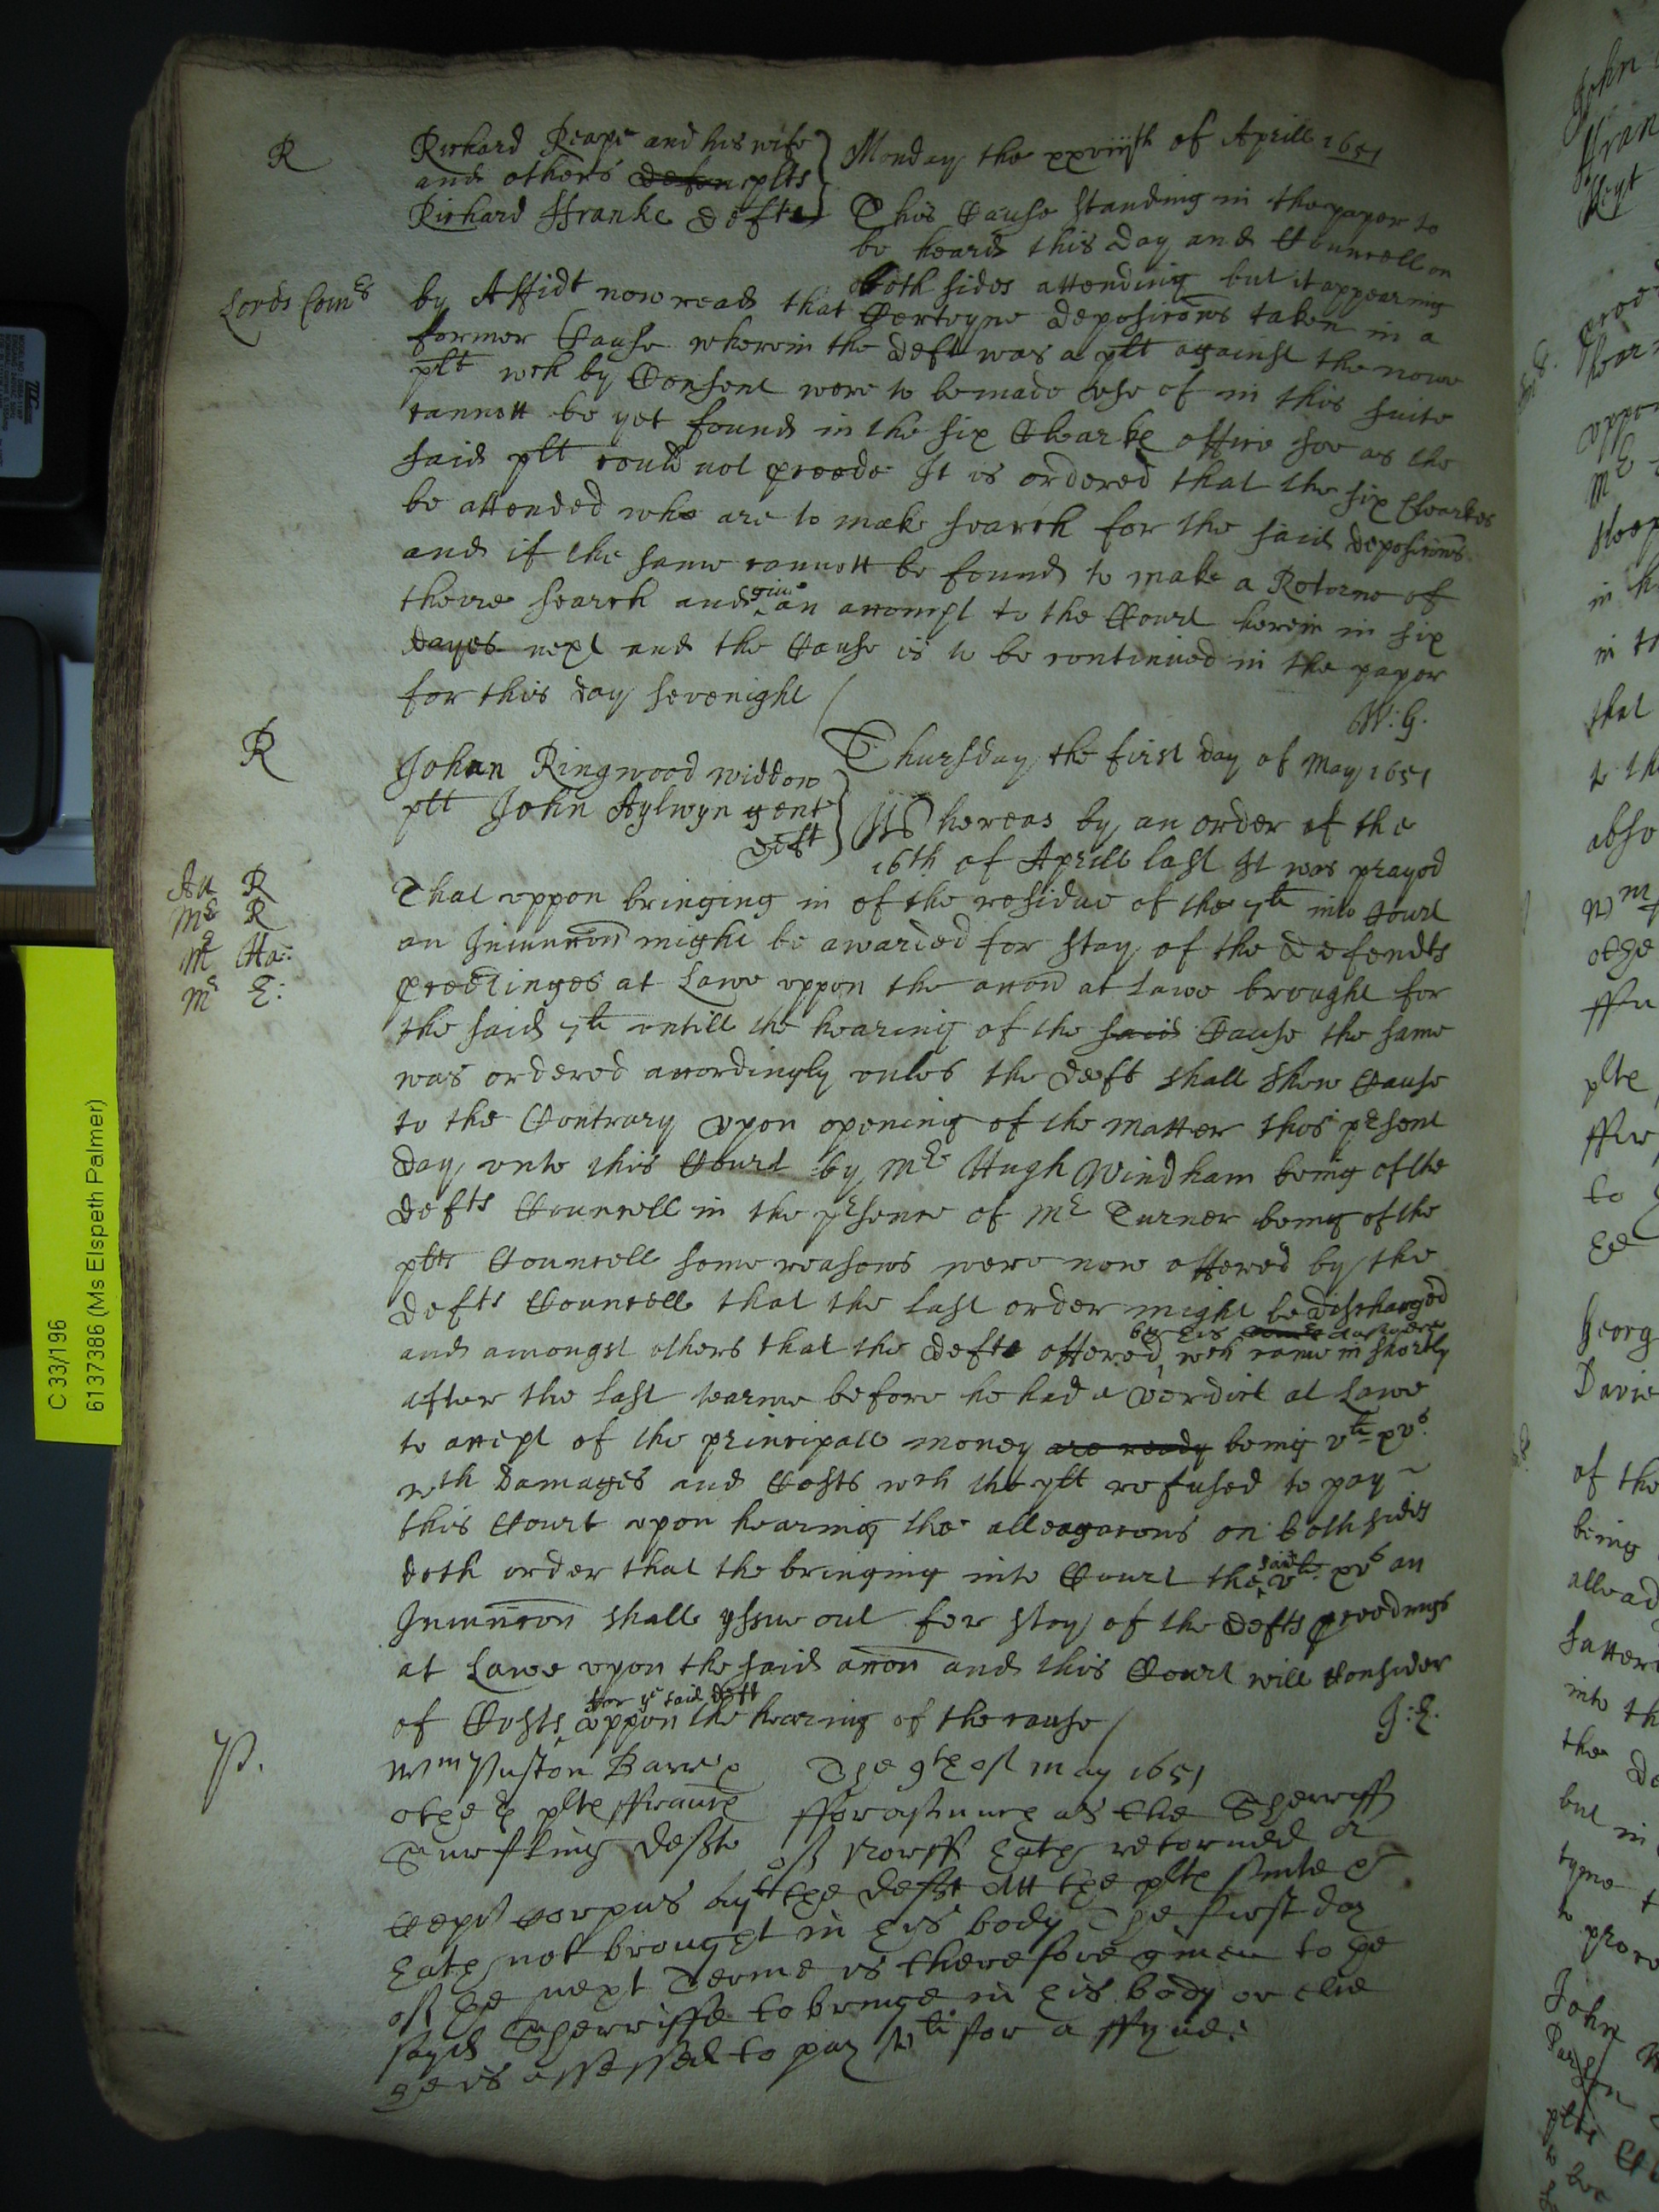 R
Richard Reape and his wife
and others defen plts
Richard Franke deft
Monday the xxviiith of Aprill 1651
This Cause standing in the paper to
be heard this day and Councell on
both sides attending but it appearing
Lords Comrs
by Affidt now read that Certeyne deposicons taken in a
former Cause wherein the deft was a plt against the nowe
plt wch by Consent were to be made use of in this suite
cannott be yet found in the six Clearke office soe as the
said plt could not proceede It is ordered that the six Clearkes
be attended who are to make search for the said deposicons
and if the same cannott be found to make a Retorne of
theire search and give an accompt to the Court herein in six
dayes next and the Cause is to be continued in the paper
for this day sevenight /
W: G.
R
Johan Ringwood widdow
plt John Aylwyn gent
deft
Thursday the first day of May 1651
Whereas by an order of the
16th of Aprill last It was prayed
Au R
Mr R
Mr Ha:
Mr E:
That uppon bringing in of the residue of the 7li into Court
an Iniunccon might be awarded for stay of the defendts
proceedinges at Lawe uppon the accon at Lawe brought for
the said 7li untill the hearing of the said Cause the same
was ordered accordingly unles the deft shall shew Cause
to the Contrary upon opening of the matter this psent
day unto this Court by Mr Hugh Windham being of the
defts Councell in the psence of Mr Turner being of the
plts Councell some reasons were now offered by the
defts Councell that the last order might be discharged
and amongst others that the deft offered by his answere wch came in shortly
after the last tearme before he had a verdict at Lawe
to accept of the principall money are ready being vli xvs
wth damages and Costs wch the plt refused to pay
this Court upon hearing the alleagacons on both sides
doth order that the bringing into Court the said vli xvs an
Iniunccon shall yssue out for stay of the defts proceedings
at Lawe upon the said accon and this Court will Consider
of Costs for ye said deft uppon the hearing of the cause /
J: E.
P.
Wm Paston Barr
others plts
defte
The 9th of May 1651
fforasmuch as the Sherriff
of Norff hath retorned a
Cepi Corpus agt the deft att the plts suite &
hath not brought in his body The first day
of the next Terme is therefore given to the
sayd Sherriffe to bringe in his body or else
he is assessed to pay li for a ffyne:
C 33/196
6137386 (Ms Elspeth Palmer)